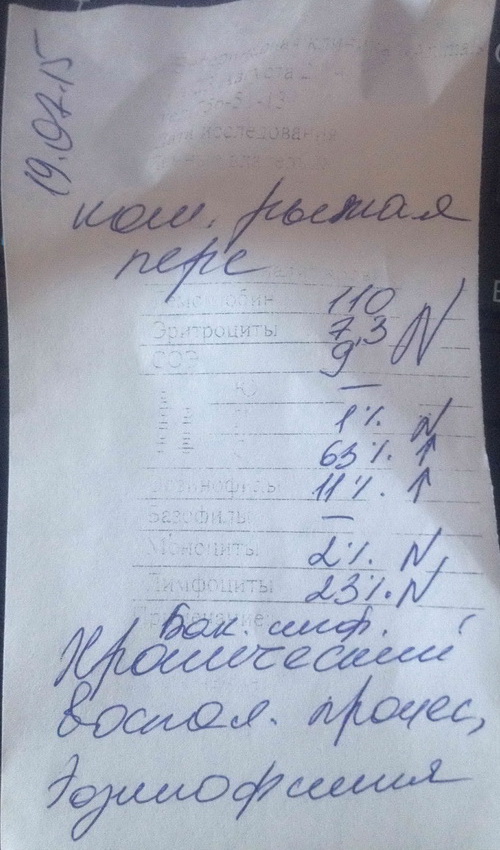 19.07.15
исследования
кош. рыжая
перс
Гемоглобин 110
Эритроциты 7,3 N
СОЭ 9
Ю —
1% N
63% ↑
Эозинофилы 11% ↑
Базофилы —
Моноциты 2% N
Лимфоциты 23% N
Примечание:
Бак. инф.
Хронический
воспал. процес,
Эозинофилия